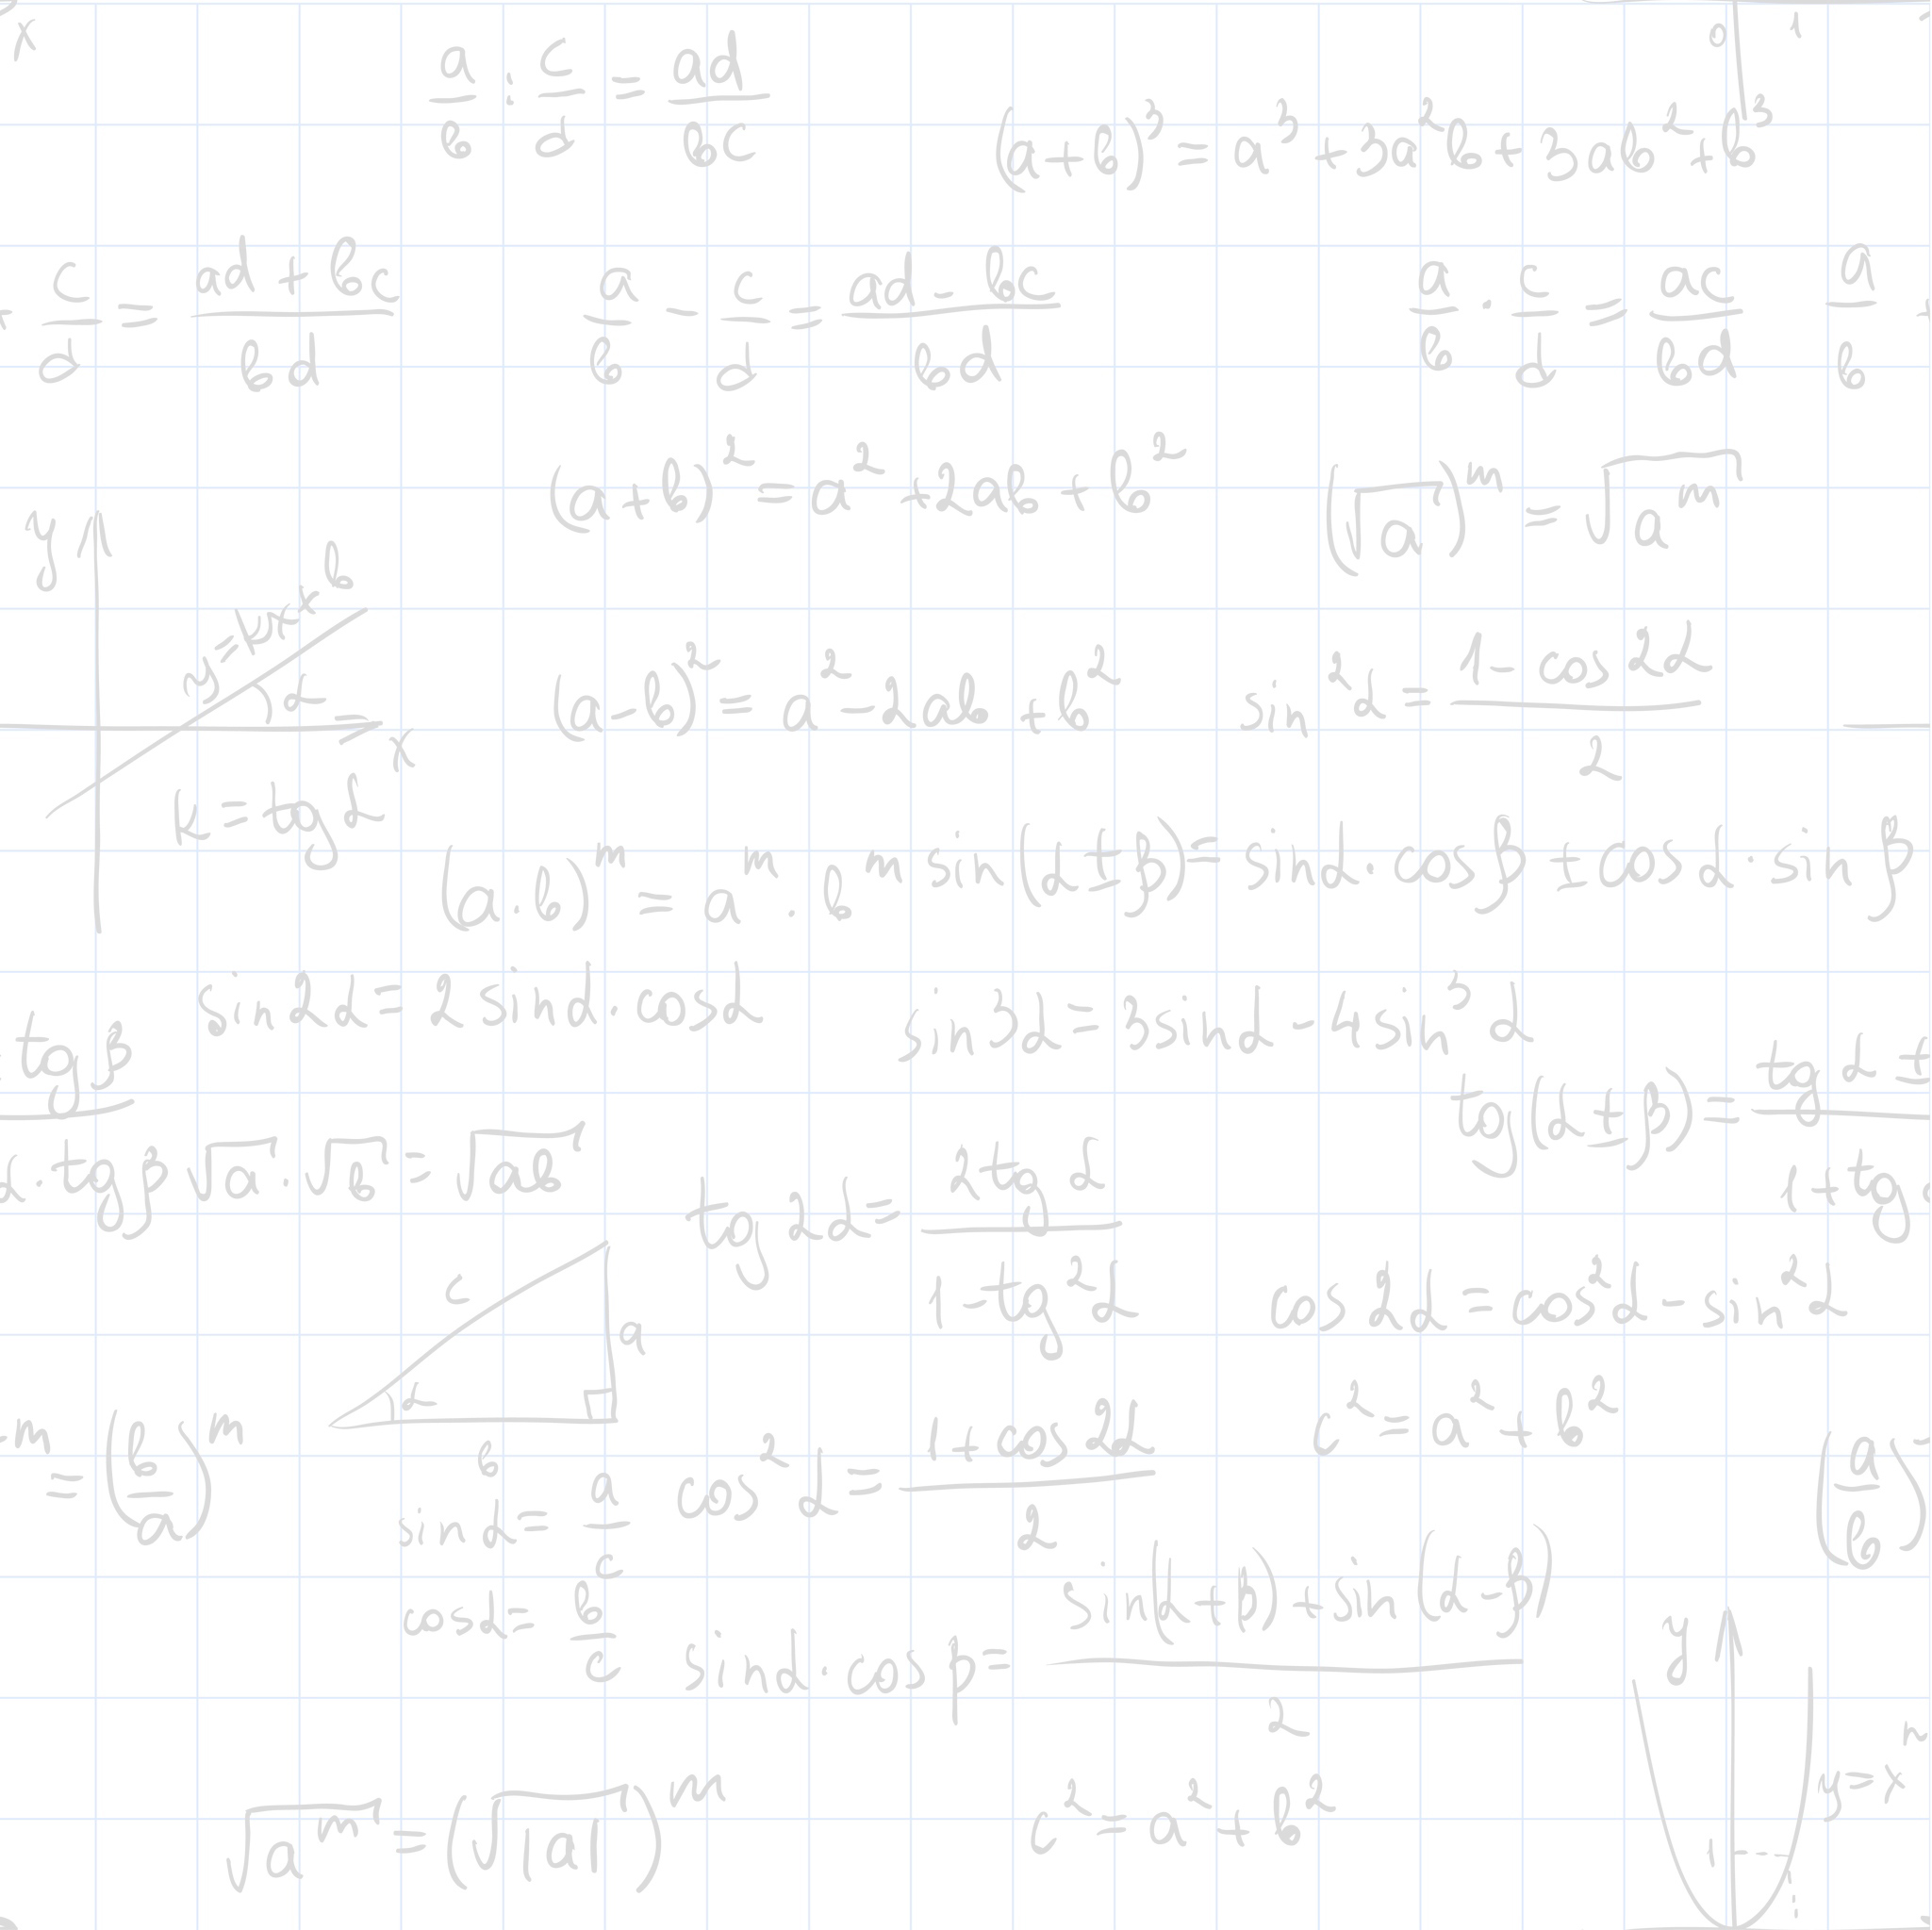 x
a/b : c/d = ad/bc
(a+b)³ = a³+3a²b+3ab²+b³
0 1
c/d = ad+bc/bd
a/b - c/d = ad-bc/bd
a/b · c/d = ac/bd
a/b
(a+b)² = a²+2ab+b²
(√a)ᵐ = √aᵐ
y
y=kx+b
α
x
k=tgα
(a-b)² = a²-2ab+b²
sin²α = 1-cos2α/2
(a·b)ᵐ = aᵐ·bᵐ
sin(α±β)=sinα·cosβ±cosα·sinβ
sin2α=2sinα·cosα
sin3α=3sinα-4sin³α
tgβ
α·tgβ
√a·√b=√ab
tg2α= 2tgα/1-tg²α
tg(α±β)= tgα±/1∓tg
c
a
α
b
cos2α=cos²α-sin²α
c²=a²+b²
m = (b/a)ᵐ
sinα= a/c
cos²α= 1+cos2α/2
(a/b)
cosα= b/c
sinα·cosβ= sin(α+β)+sin(α-β)/2
y
y=xⁿ
1
√aᵐ = (√|a|)ᵐ
c²=a²+b²